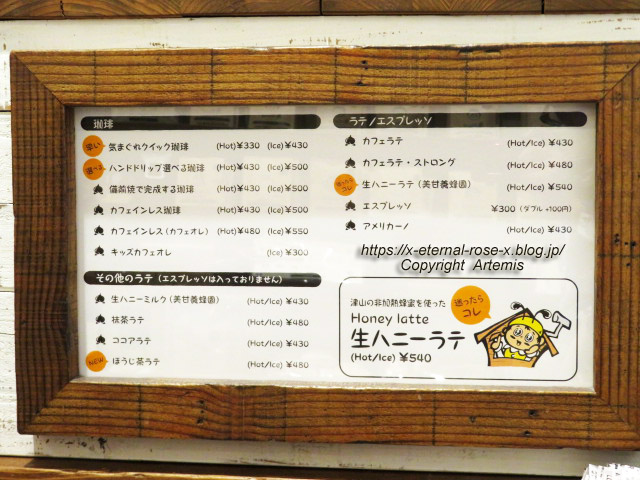 珈琲
早い 気まぐれクイック珈琲 (Hot)¥330 (Ice)¥430
選べる ハンドドリップ選べる珈琲 (Hot)¥430 (Ice)¥500
備前焼で完成する珈琲 (Hot)¥430 (Ice)¥500
カフェインレス珈琲 (Hot)¥430 (Ice)¥500
カフェインレス(カフェオレ) (Hot)¥480 (Ice)¥550
キッズカフェオレ (Ice)¥300
その他のラテ(エスプレッソは入っておりません)
生ハニーミルク(美甘養蜂園) (Hot/Ice)¥430
抹茶ラテ (Hot/Ice)¥480
ココアラテ (Hot/Ice)¥430
NEW ほうじ茶ラテ (Hot/Ice)¥480
ラテ/エスプレッソ
カフェラテ (Hot/Ice)¥430
カフェラテ・ストロング (Hot/Ice)¥480
迷ったらコレ 生ハニーラテ(美甘養蜂園) (Hot/Ice)¥540
エスプレッソ ¥300(ダブル+100円)
アメリカーノ (Hot/Ice)¥430
https://x-eternal-rose-x.blog.jp/
Copyright Artemis
津山の非加熱蜂蜜を使った
Honey latte
生ハニーラテ
(Hot/Ice)¥540
迷ったら
コレ